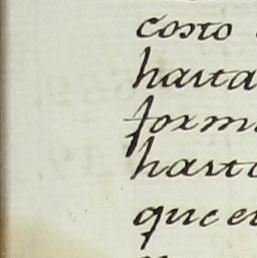 costo
hasta
form
hast
que e